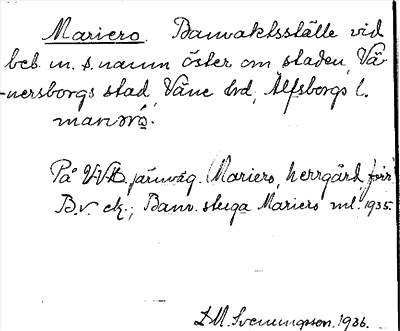 Mariero. Banvaktsställe vid
beb. m. s. namn öster om staden, Vä-
nersborgs stad, Väne hd, Älfsborgs l.
På järnväg. (Mariero, herrgård, förr
B.v. ek.; Banv. stuga Mariero ml. 1935.
D.M. Svenungsson. 1936.